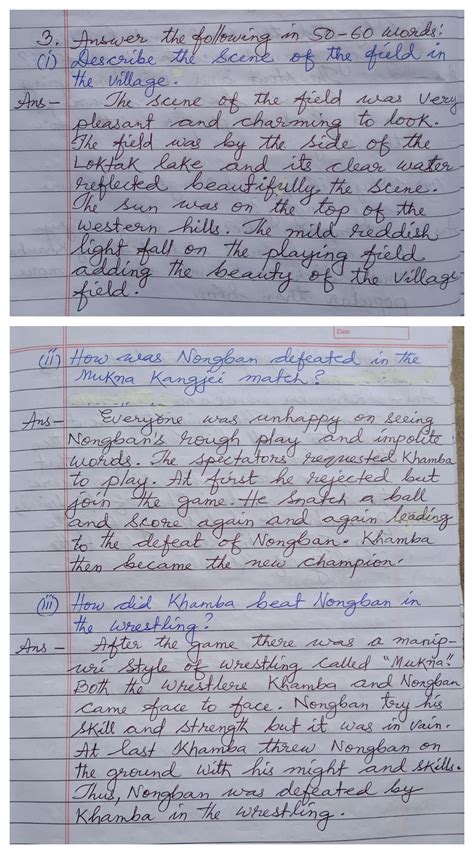 3. Answer the following in 50-60 words:
(i) Describe the scene of the field in
the village.
Ans- The scene of the field was very
pleasant and charming to look.
The field was by the side of the
Loktak lake and its clear water
reflected beautifully the scene.
The sun was on the top of the
western hills. The mild reddish
light fall on the playing field
adding the beauty of the village
field.
Date:
(ii) How was Nongban defeated in the
Mukna Kangjei match?
Ans- Everyone was unhappy on seeing
Nongban's rough play and impolite
words. The spectators requested Khamba
to play. At first he rejected but
join the game. He snatch a ball
and score again and again leading
to the defeat of Nongban. Khamba
then became the new champion.
(iii) How did Khamba beat Nongban in
the wrestling?
Ans- After the game there was a manip-
uri style of wrestling called "Mukna".
Both the wrestlers Khamba and Nongban
came face to face. Nongban try his
skill and strength but it was in vain.
At last Khamba threw Nongban on
the ground with his might and skills.
Thus, Nongban was defeated by
Khamba in the wrestling.